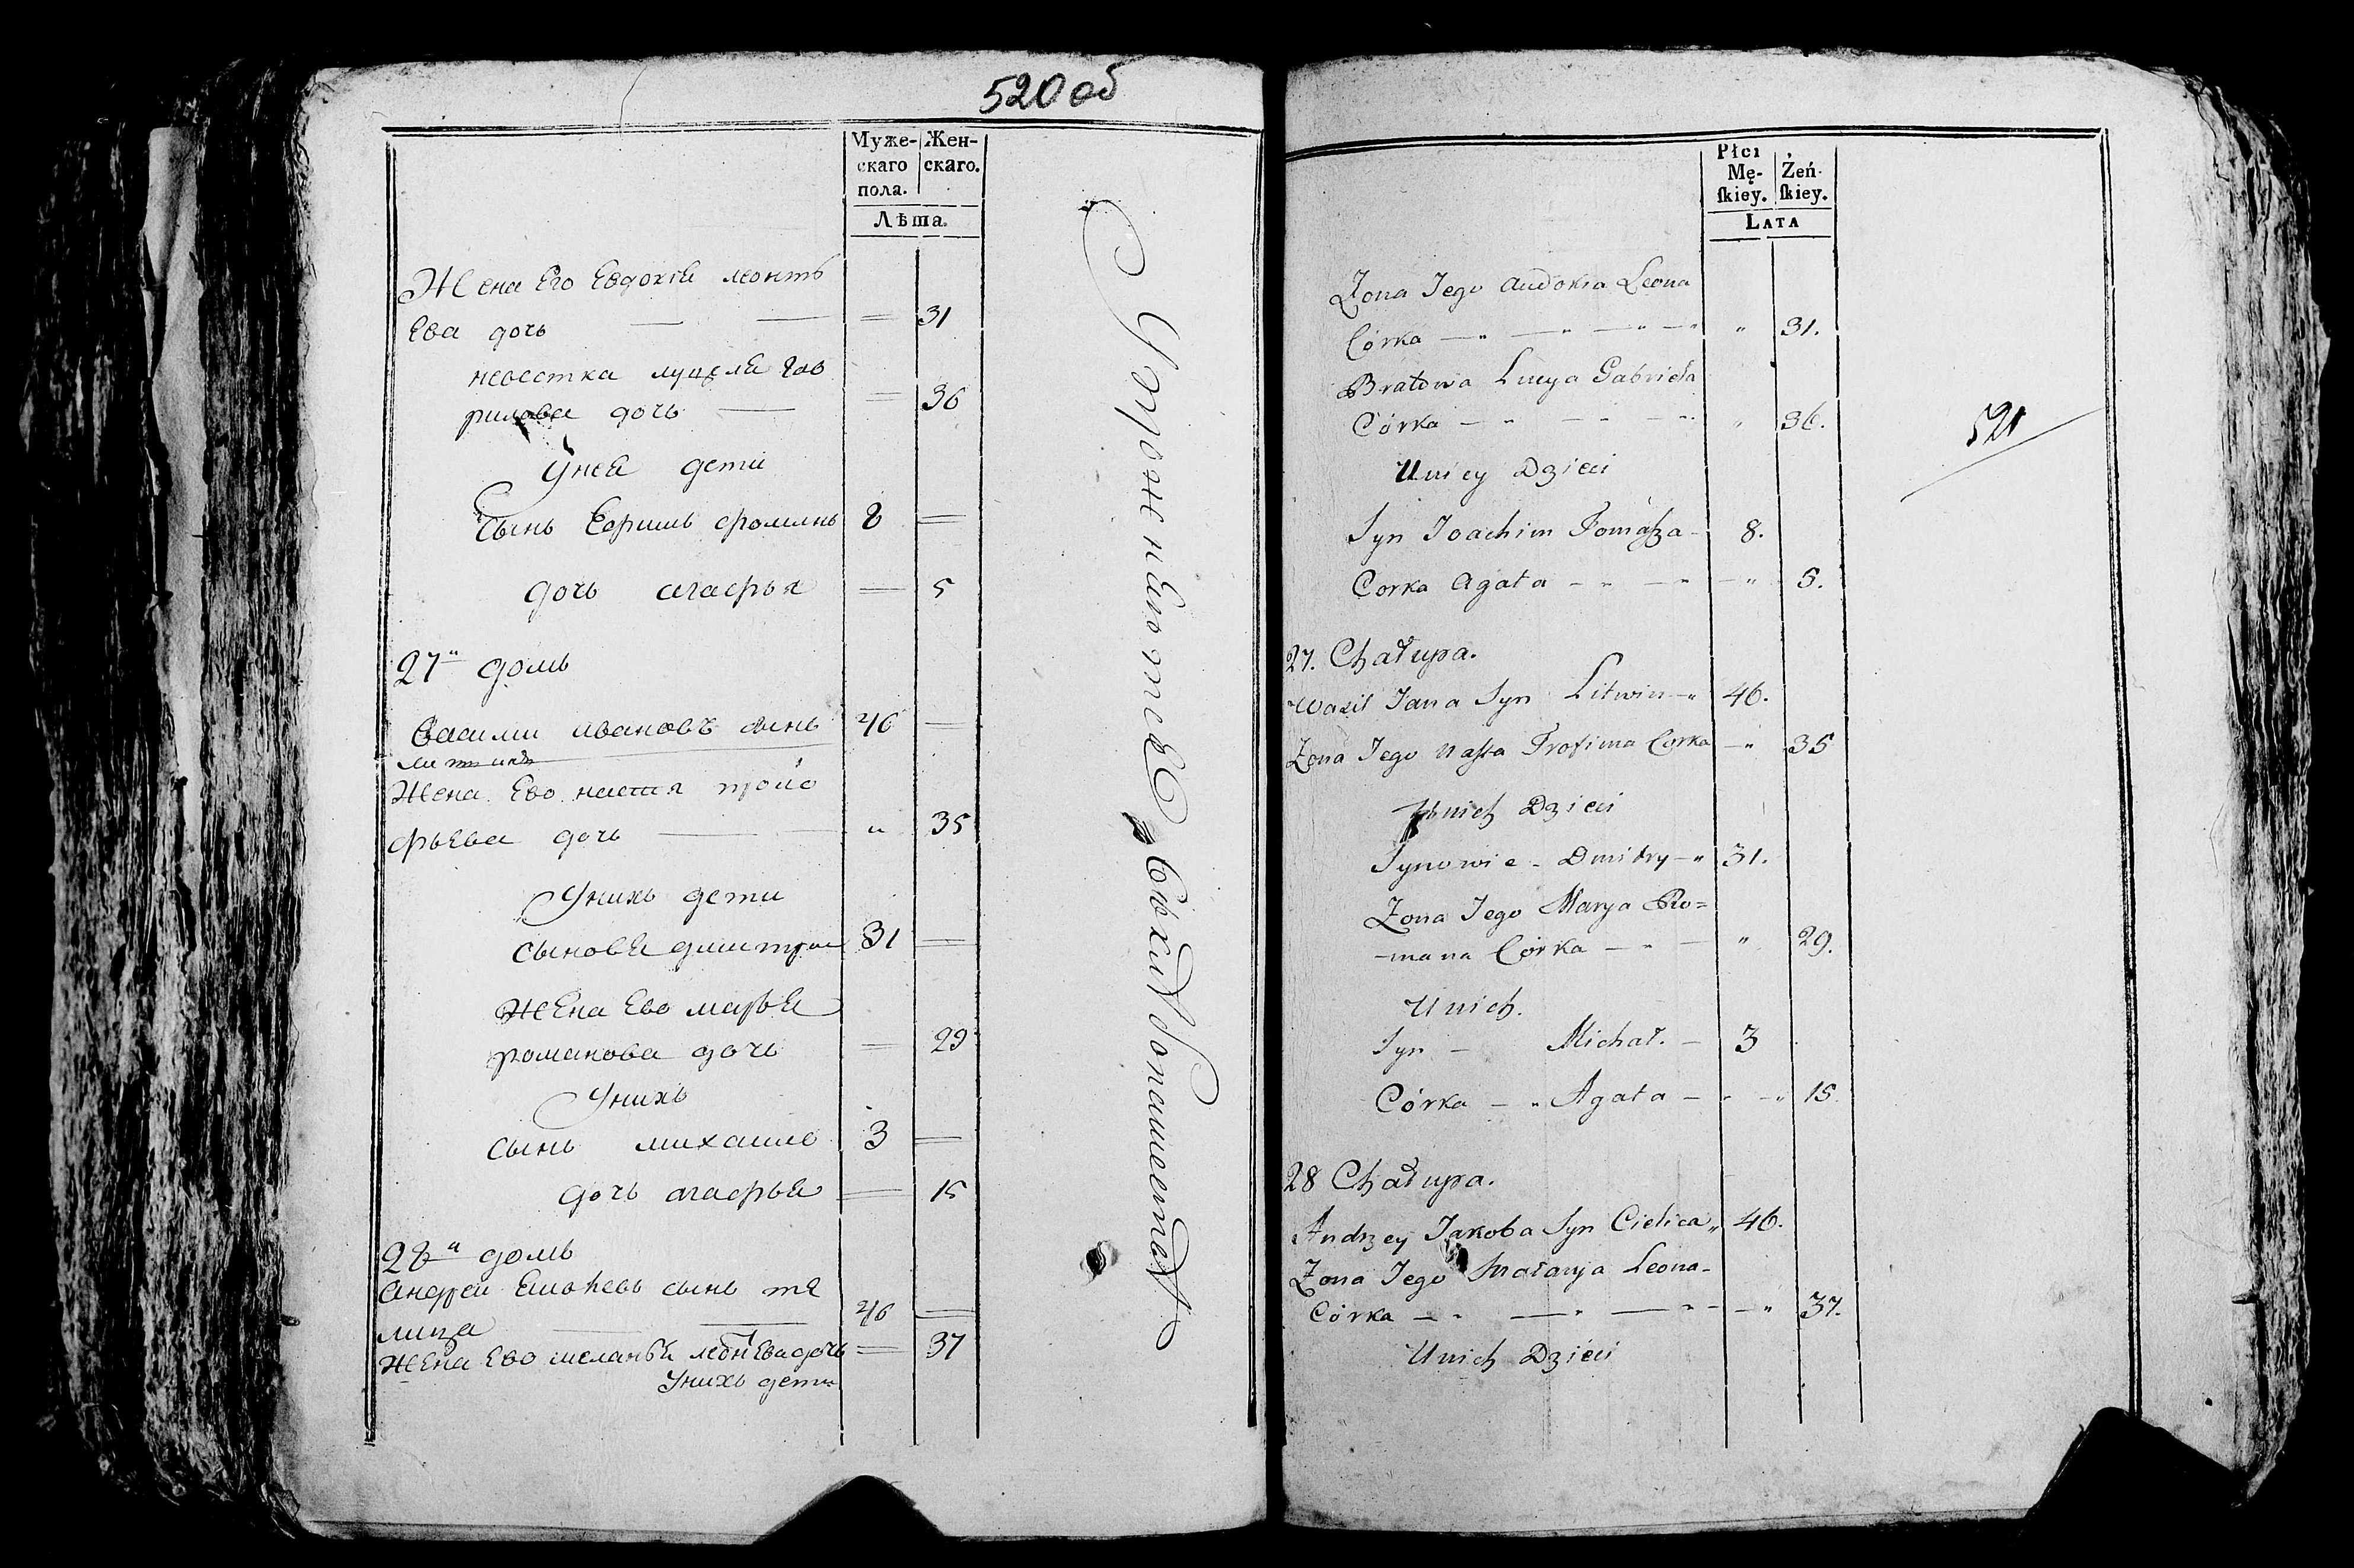 520 об
Муже-
скаго
пола.
Жен-
скаго.
Лѣта.
Жена Его Евдохiя леонть
Ева дочь — — = 31
невестка луцея Гав
рилова дочь — = 36
Унея дети
сынъ Ефимъ фоминъ 8 =
дочь агафья = 5
27й домъ
Василии ивановъ сынъ 46 =
Жена Ево настя трои
фьева дочь — " 35
Унихъ дети
сыновья дмитри 31 =
жена Ево марья
романова дочь = 29
Унихъ
сынъ михаило 3 =
дочь агафья = 15
28й домъ
Андреи сынъ тя
лица — — 46 =
жена Ево меланья леонЕва дочь = 37
Унихъ дети
Płci
Mę-
ſkiey.
Żeń-
ſkiey.
LATA
Zona Jego Audokia Leona
Córka — " — " — " — " " 31.
Bratowa Lucya Gabriela
Córka — " — " 36.
521
Uniey Dzieci
Syn Joachim Tomaſza - 8.
Corka Agata - " — " — " 5.
27. Chałupa.
Wasil Jana Syn Litwin — " 46.
Zona Jego Naſta Trofima Corka — " 35
Unich Dzieci
Synowie - Dmitry — " 31.
Zona Jego Marya Ro=
-mana Córka — " — " 29.
Unich.
Syn — Michał. — 3
Córka — " Agata — " — " 15.
28 Chałupa.
Andrzey Jakoba Syn Cielica " 46.
Zona Jego Małanja Leona-
Córka — " — " — " — " 37.
Unich Dzieci